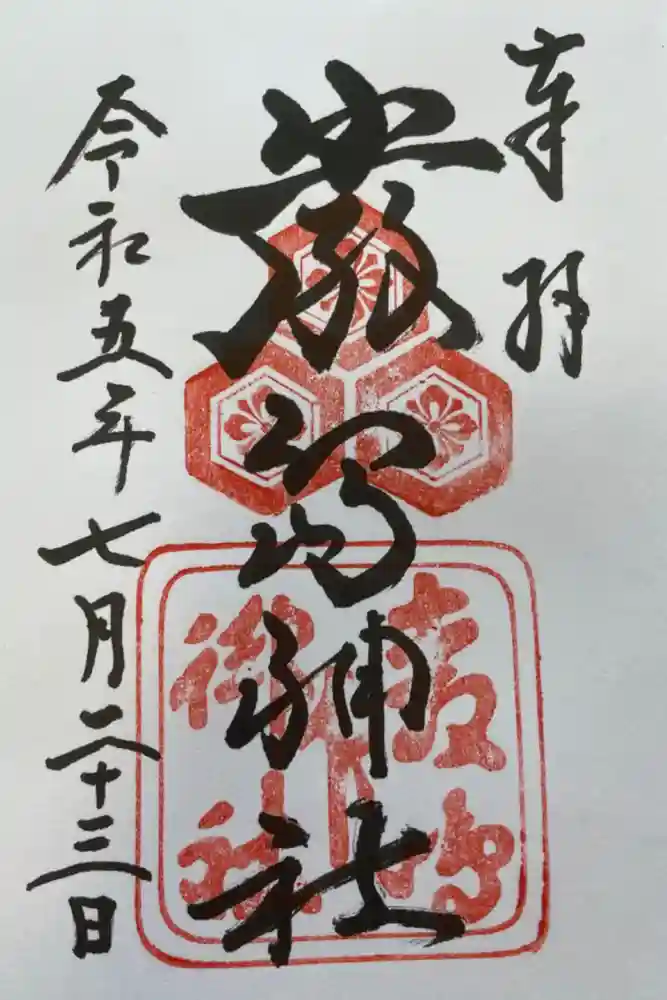 奉拝
厳島神社
令和五年七月二十三日